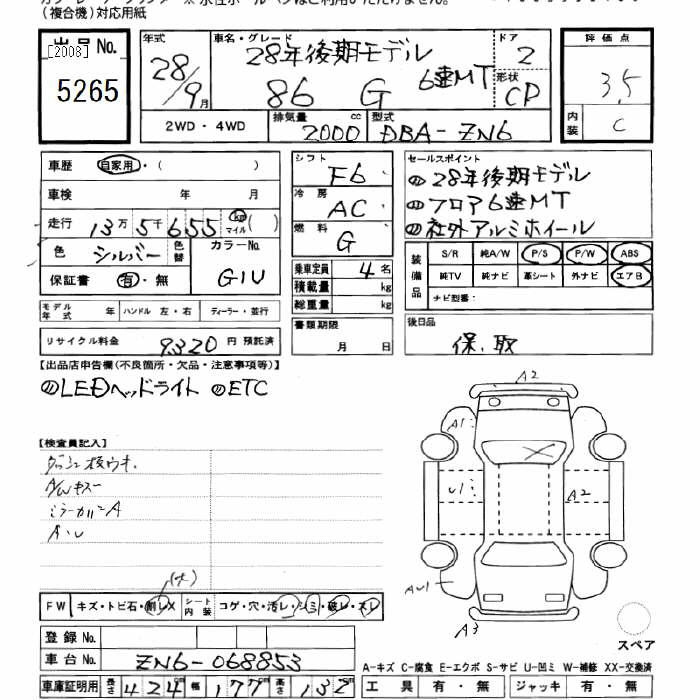 (複合機)対応用紙
出品No.
[2008]
5265
年式
28/9月
車名・グレード
28年後期モデル
86 G 6速MT
ドア
2
形状
CP
評価点
3.5
内装
C
2WD・4WD
排気量 2000 cc
型式 DBA-ZN6
車歴 自家用・( )
車検 年 月
走行 13万5千655 km マイル ( )
色 シルバー 色替
カラーNo.
G1U
保証書 有・無
モデル年式 年 ハンドル 左・右 ディーラー・並行
リサイクル料金 9320 円 預託済
シフト F6
冷房 AC
燃料 G
乗車定員 4 名
積載量 kg
総重量 kg
書類期限
月 日
セールスポイント
28年後期モデル
フロア6速MT
社外アルミホイール
装備品
S/R 純A/W P/S P/W ABS
純TV 純ナビ 革シート 外ナビ エアB
ナビ型番:
後日品
保、取
【出品店申告欄(不良箇所・欠品・注意事項等)】
LEDヘッドライト ETC
【検査員記入】
A/Wキズ
A・U
FW キズ・トビ石・割レX
シート内装 コゲ・穴・汚レ・シミ・破レ・スレ
登録No.
車台No. ZN6-068853
車庫証明用 長さ 424 cm 幅 177 cm 高さ 132 cm
A2
A1
X
U1
A2
A3
スペア
A-キズ C-腐食 E-エクボ S-サビ U-凹ミ W-補修 XX-交換済
工具 有・無 ジャッキ 有・無